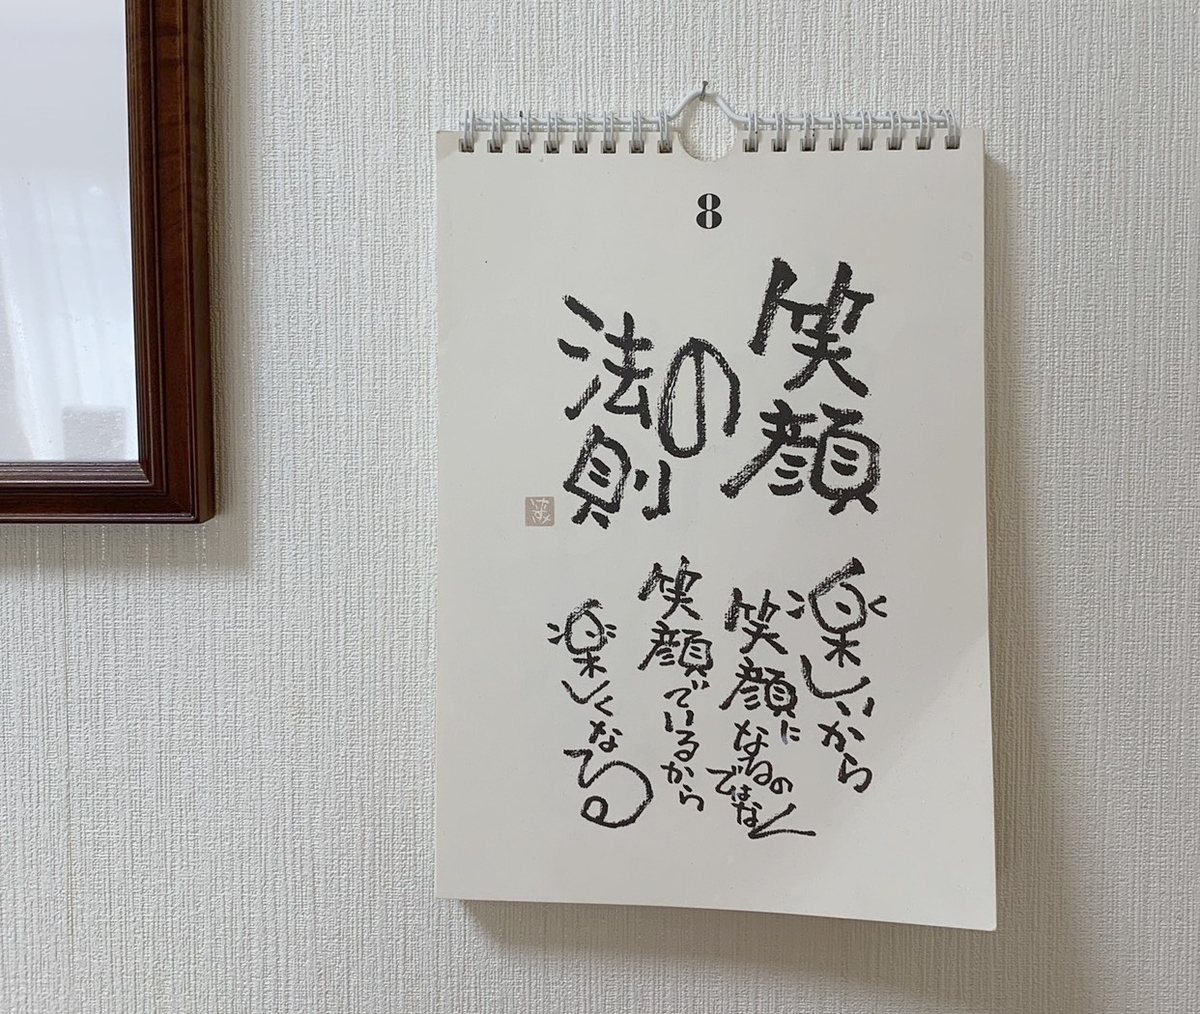 8
笑顔
の
法則
楽しいから
笑顔に
なるの
ではなく
笑顔でいるから
楽しくなる